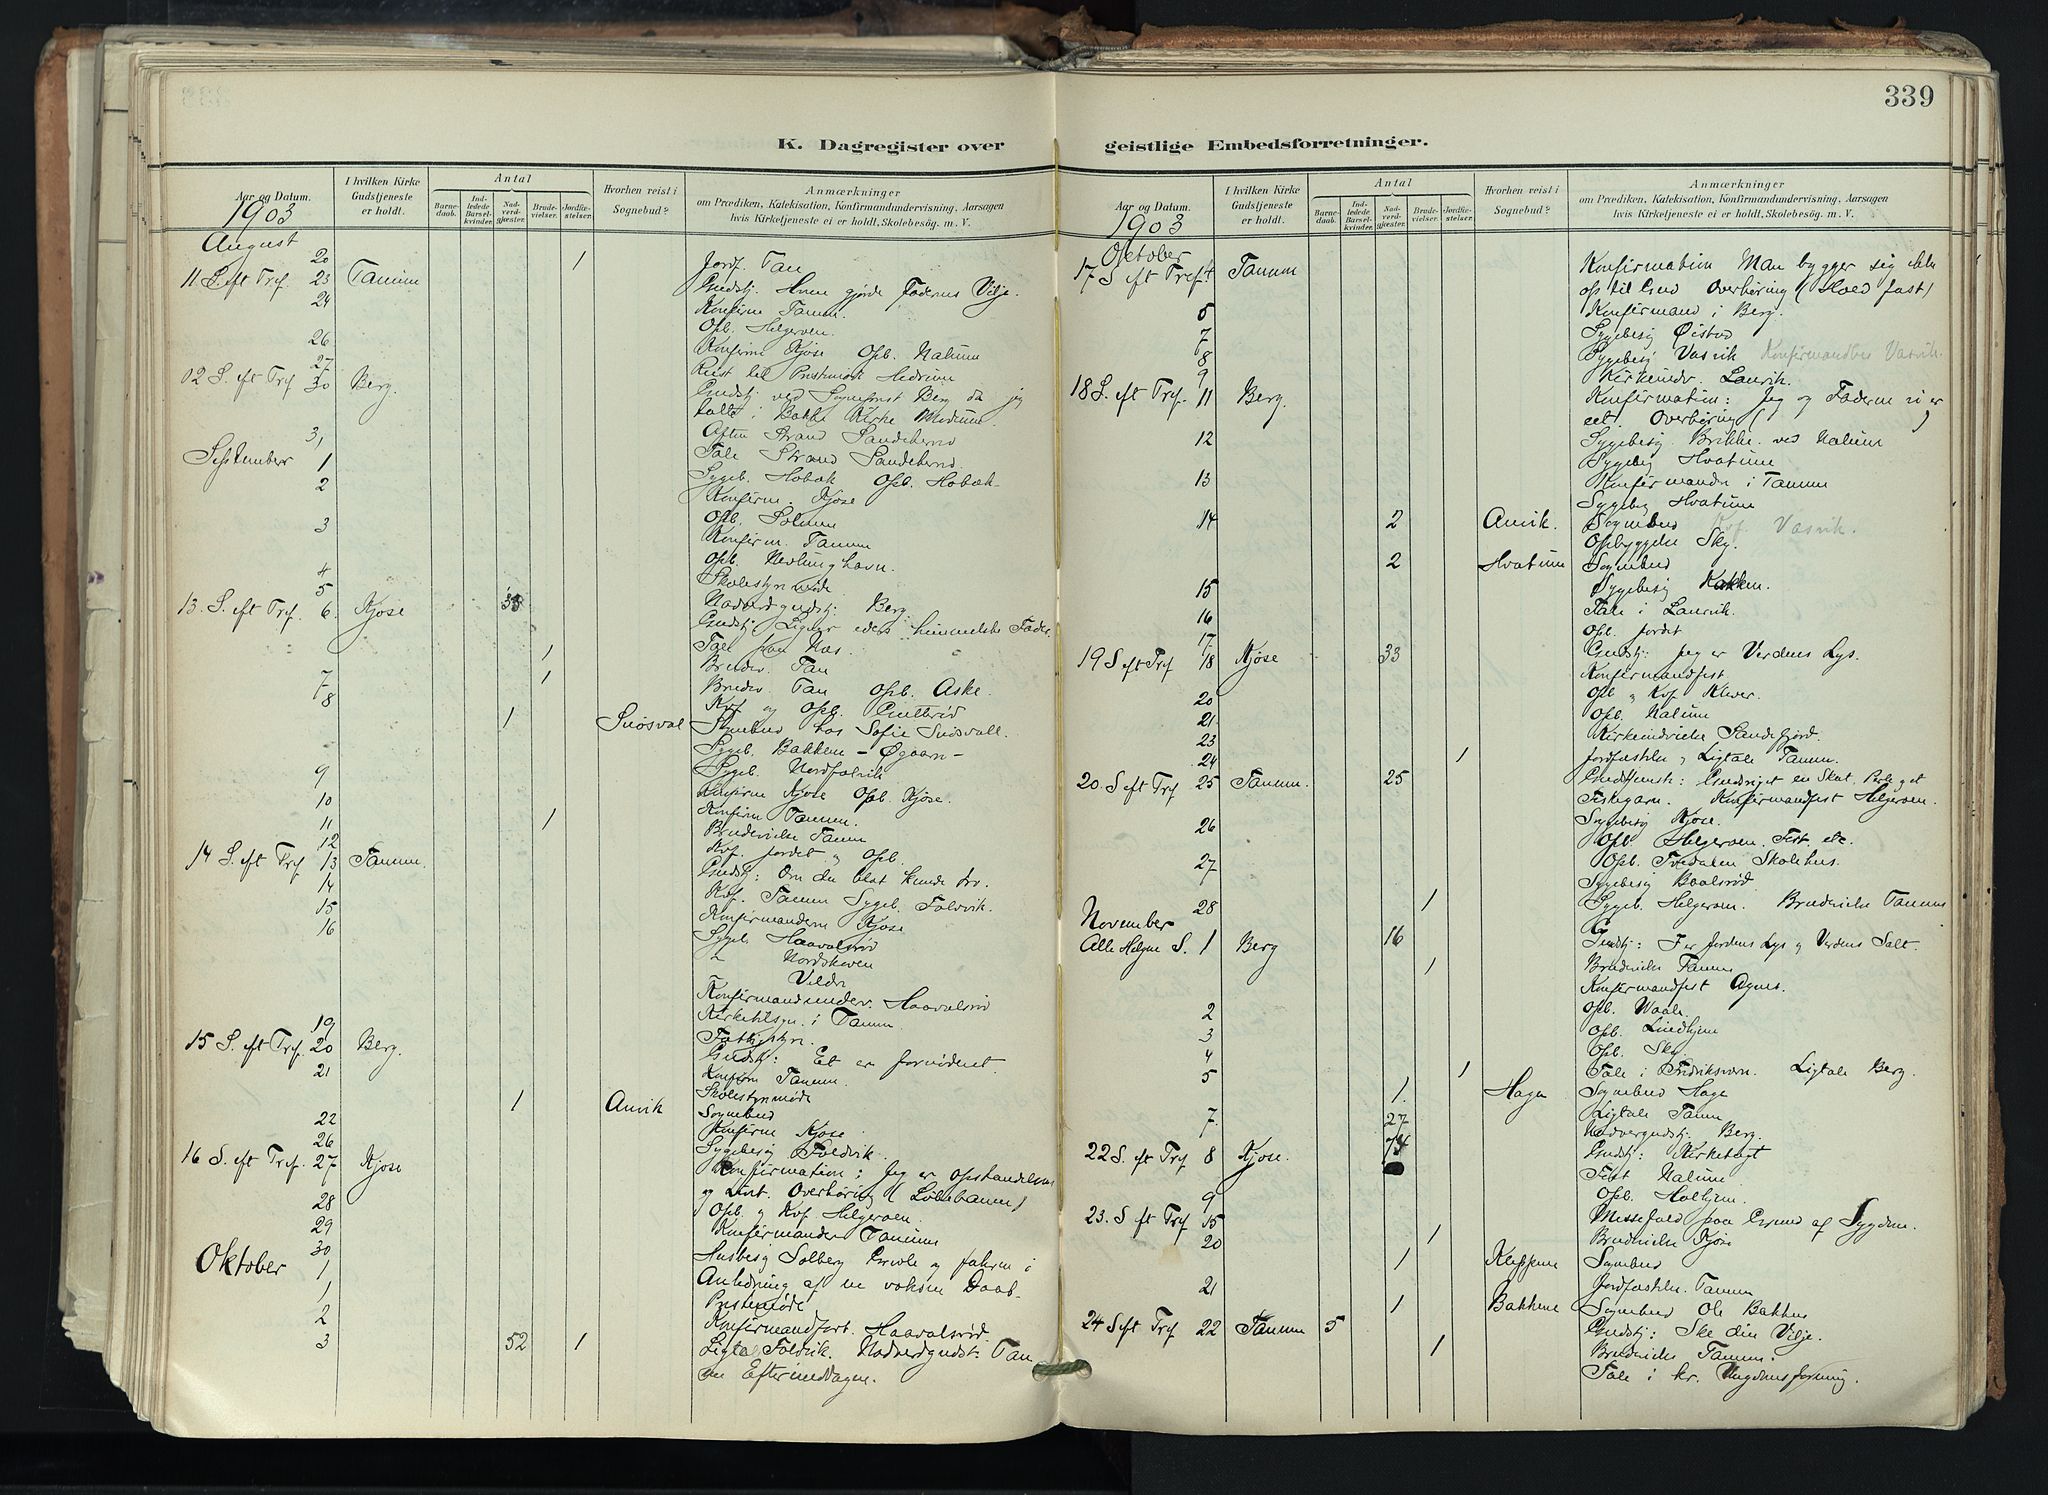 339
K. Dagregister over geistlige Embedsforretninger.
Aar og Datum.
I hvilken Kirke Gudstjeneste er holdt.
Antal
Barnedaab.
Indledede Barselkvinder.
Nadverdgjæster.
Brudevielser.
Jordfæstelser.
Hvorhen reist i Sognebud?
Anmærkninger
om Prædiken, Katekisation, Konfirmandundervisning, Aarsagen
hvis Kirketjeneste ei er holdt, Skolebesøg. m. V.
1903
August
20 1 Jordf. Tan
11 S. eft Tref. 23 Tanum Gudstj. Hvem gjorde Faderens Vilje.
24 Konfirm Tanum.
Opb. Helgeroen.
26 Konfirm Kjose Opb. Nalum
27 Reist til Præstemøde Hedrum
02 S. eft Tref 30 Berg. Gudstj ved Sogneprest Berg da jeg
talte i Bakke Kirke
31 Aften Strand Sandeherred
September 1 Tale Strand Sandeherred.
2 Sygeb. Hobæk Opb. Hobæk
Konfirm. Kjose
3 Opb.
Konfirm. Tanum
Opb. Nevlunghavn.
4 Skolestyrmøde
5 Nadverdgudstj: Berg
13. S. eft Tref. 6. Kjose 33 Gudstj: eders himmelske Fader
Tale paa Næs.
1 Brudev. Tan
7 1 Brudev. Tan Opb. Aske.
8 Kof og Opb.
1 Snøsval Sognebud hos Sofie Snøsvall.
Sygeb. Bakken
Sygeb. Nordfalvik
9 Konfirm Kjose Opb. Kjose.
10 Konfirm Tanum.
11 1 Brudevielse Tanum
12 Kof. Jordet og Opb.
14 S. eft Tref 13 Tanum. Gudstj: Om du blot kunde tro.
14 Kof. Tanum Sygeb. Foldvik.
15 Konfirmanderne Kjose
16 Sygeb. Haavalsrød
Nordskoven
Konfirmandunderv. Haavalsrød
Kirketilsyn. i Tanum.
19 Fattigstyr.
15 S. eft Tref 20 Berg. Gudstj: Et er fornødent.
21 Konfirm Tanum.
Skolestyrmøde
1 Anvik Sognebud
22 Konfirm Kjose
26 Sygebesøg Foldvik.
16 S. eft Tref. 27 Kjose Konfirmation: Jeg er Opstandelsen
og Livet. Overhøring (Løbebanen)
28 Opb. og Kof Helgeroen.
29 Konfirmander Tanum
30 Husbesøg Solberg
Oktober 1 Anledning af en voksen Daab
1 Prestemøde
2 Konfirmandfort. Haavalsrød.
3 52 1 Ligtal Foldvik. Nadverdgudst: Tan
um Eftermiddagen.
Aar og Datum.
I hvilken Kirke Gudstjeneste er holdt.
Antal
Barnedaab.
Indledede Barselkvinder.
Nadverdgjæster.
Brudevielser.
Jordfæstelser.
Hvorhen reist i Sognebud?
Anmærkninger
om Prædiken, Katekisation, Konfirmandundervisning, Aarsagen
hvis Kirketjeneste ei er holdt, Skolebesøg. m. V.
1903
Oktober
17 S eft Tref 4 Tanum Konfirmation Man bygger sig ikke
op til Gud Overhøring (Hold fast)
5 Konfirmand i Berg.
7 Sygebesøg
8 Sygebesøg Vasvik Konfirmandbes Vasvik.
9 Kirkeindv. Laurvik.
18 S. eft Tref. 11 Berg. Konfirmation: Jeg og Faderen vi er
eet. Overhøring ( )
12 Sygebesøg Brekke ved Nalum
Sygebesøg Hvatum
13 Konfirmander i Tanum
Sygebesøg Hvatum
14 2 Anvik. Sognebud Kof. Vasvik.
Opbyggelse Sky.
2 Hvatum Sognebud
15 Sygebesøg Bakken.
16 Tale i Laurvik.
17 Opb. Jordet
19 S eft Tref 18 Kjose 33 Gudstj: Jeg er Verdens Lys.
Konfirmandfest.
20 Opb og Kof Klever.
21. Opb. Nalum
23 Kirkeindvielse Sandefjord.
24 1 Jordfæstelse og Ligtale Tanum.
20. S eft Tref 25 Tanum. 25 Gudstjenest: Gudsriget en Skat, Perle og et
Fiskegarn. Konfirmandfest Helgeroen.
Sygebesøg Kjose.
26 Opb. Helgeroen. Fest. etc.
27 Opb. Tvedalen Skolehus.
Sygebesøg Baalsrød
28 1 Sygeb. Helgeroen. Brudevielse Tanum
November
Alle Helgene S. 1 Berg 16 Gudstj: I er Jordens Lys og Verdens Salt.
1 Brudevielse Tanum
Konfirmandfest Agnes.
2 Opb. Waale.
3 Opb. Lindhjem
4 Opb. Sky
5 1 Tale i Fredriksværn. Ligtale Berg.
1. Hagen Sognebud Hage
Ligtale Tanum
7. 27 Nadvergudstj: Berg.
22 S. eft Tref 8 Kjose. 74 Gudstj:
Fest Nalum.
9 Opb. Holhjem.
23. S eft Tref 15 Messefald paa Grund af Sygdom.
20 1 Brudevielse Kjose
1 Kleppene Sognebud
21 Jordfæstelse Tanum
1 Bakkene Sognebud Ole Bakken
24 S eft Tref 22 Tanum 5 Gudstj: Ske din Vilje.
1 Brudevielse Tanum.
Tale i kr. Ungdomsforening.